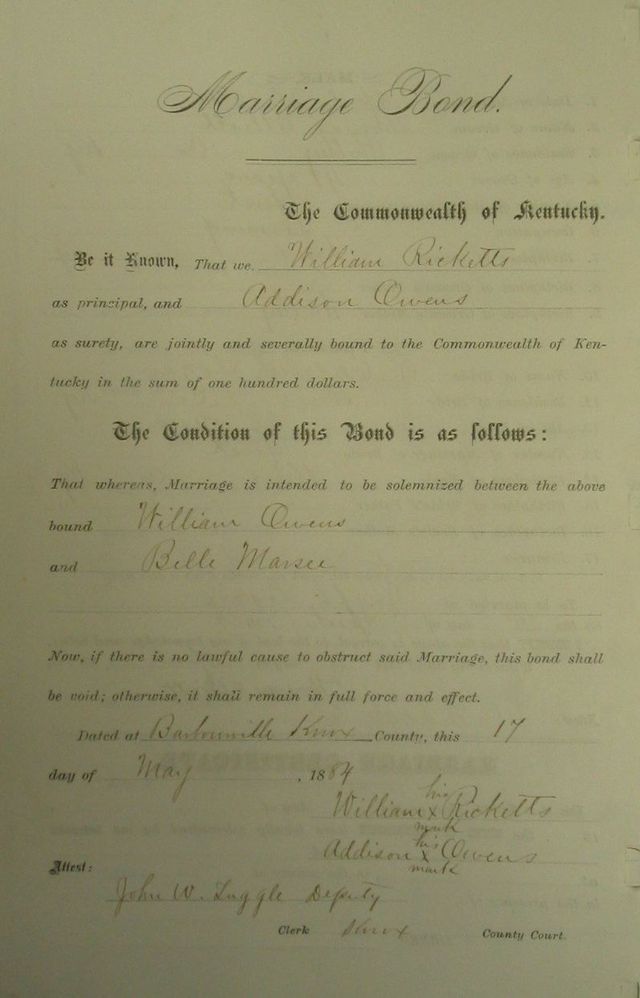 Marriage Bond.
The Commonwealth of Kentucky.
Be it Known, That we, William Ricketts
as principal, and Addison Owens
as surety, are jointly and severally bound to the Commonwealth of Ken-
tucky in the sum of one hundred dollars.
The Condition of this Bond is as follows:
That whereas, Marriage is intended to be solemnized between the above
bound William Owens
and Belle Marsee
Now, if there is no lawful cause to obstruct said Marriage, this bond shall
be void; otherwise, it shall remain in full force and effect.
Dated at Barbourville Knox County, this 17
day of May, 1884
his
William x Ricketts
mark
his
Addison x Owens
mark
Attest:
John W. Tuggle Deputy
Clerk Knox County Court.